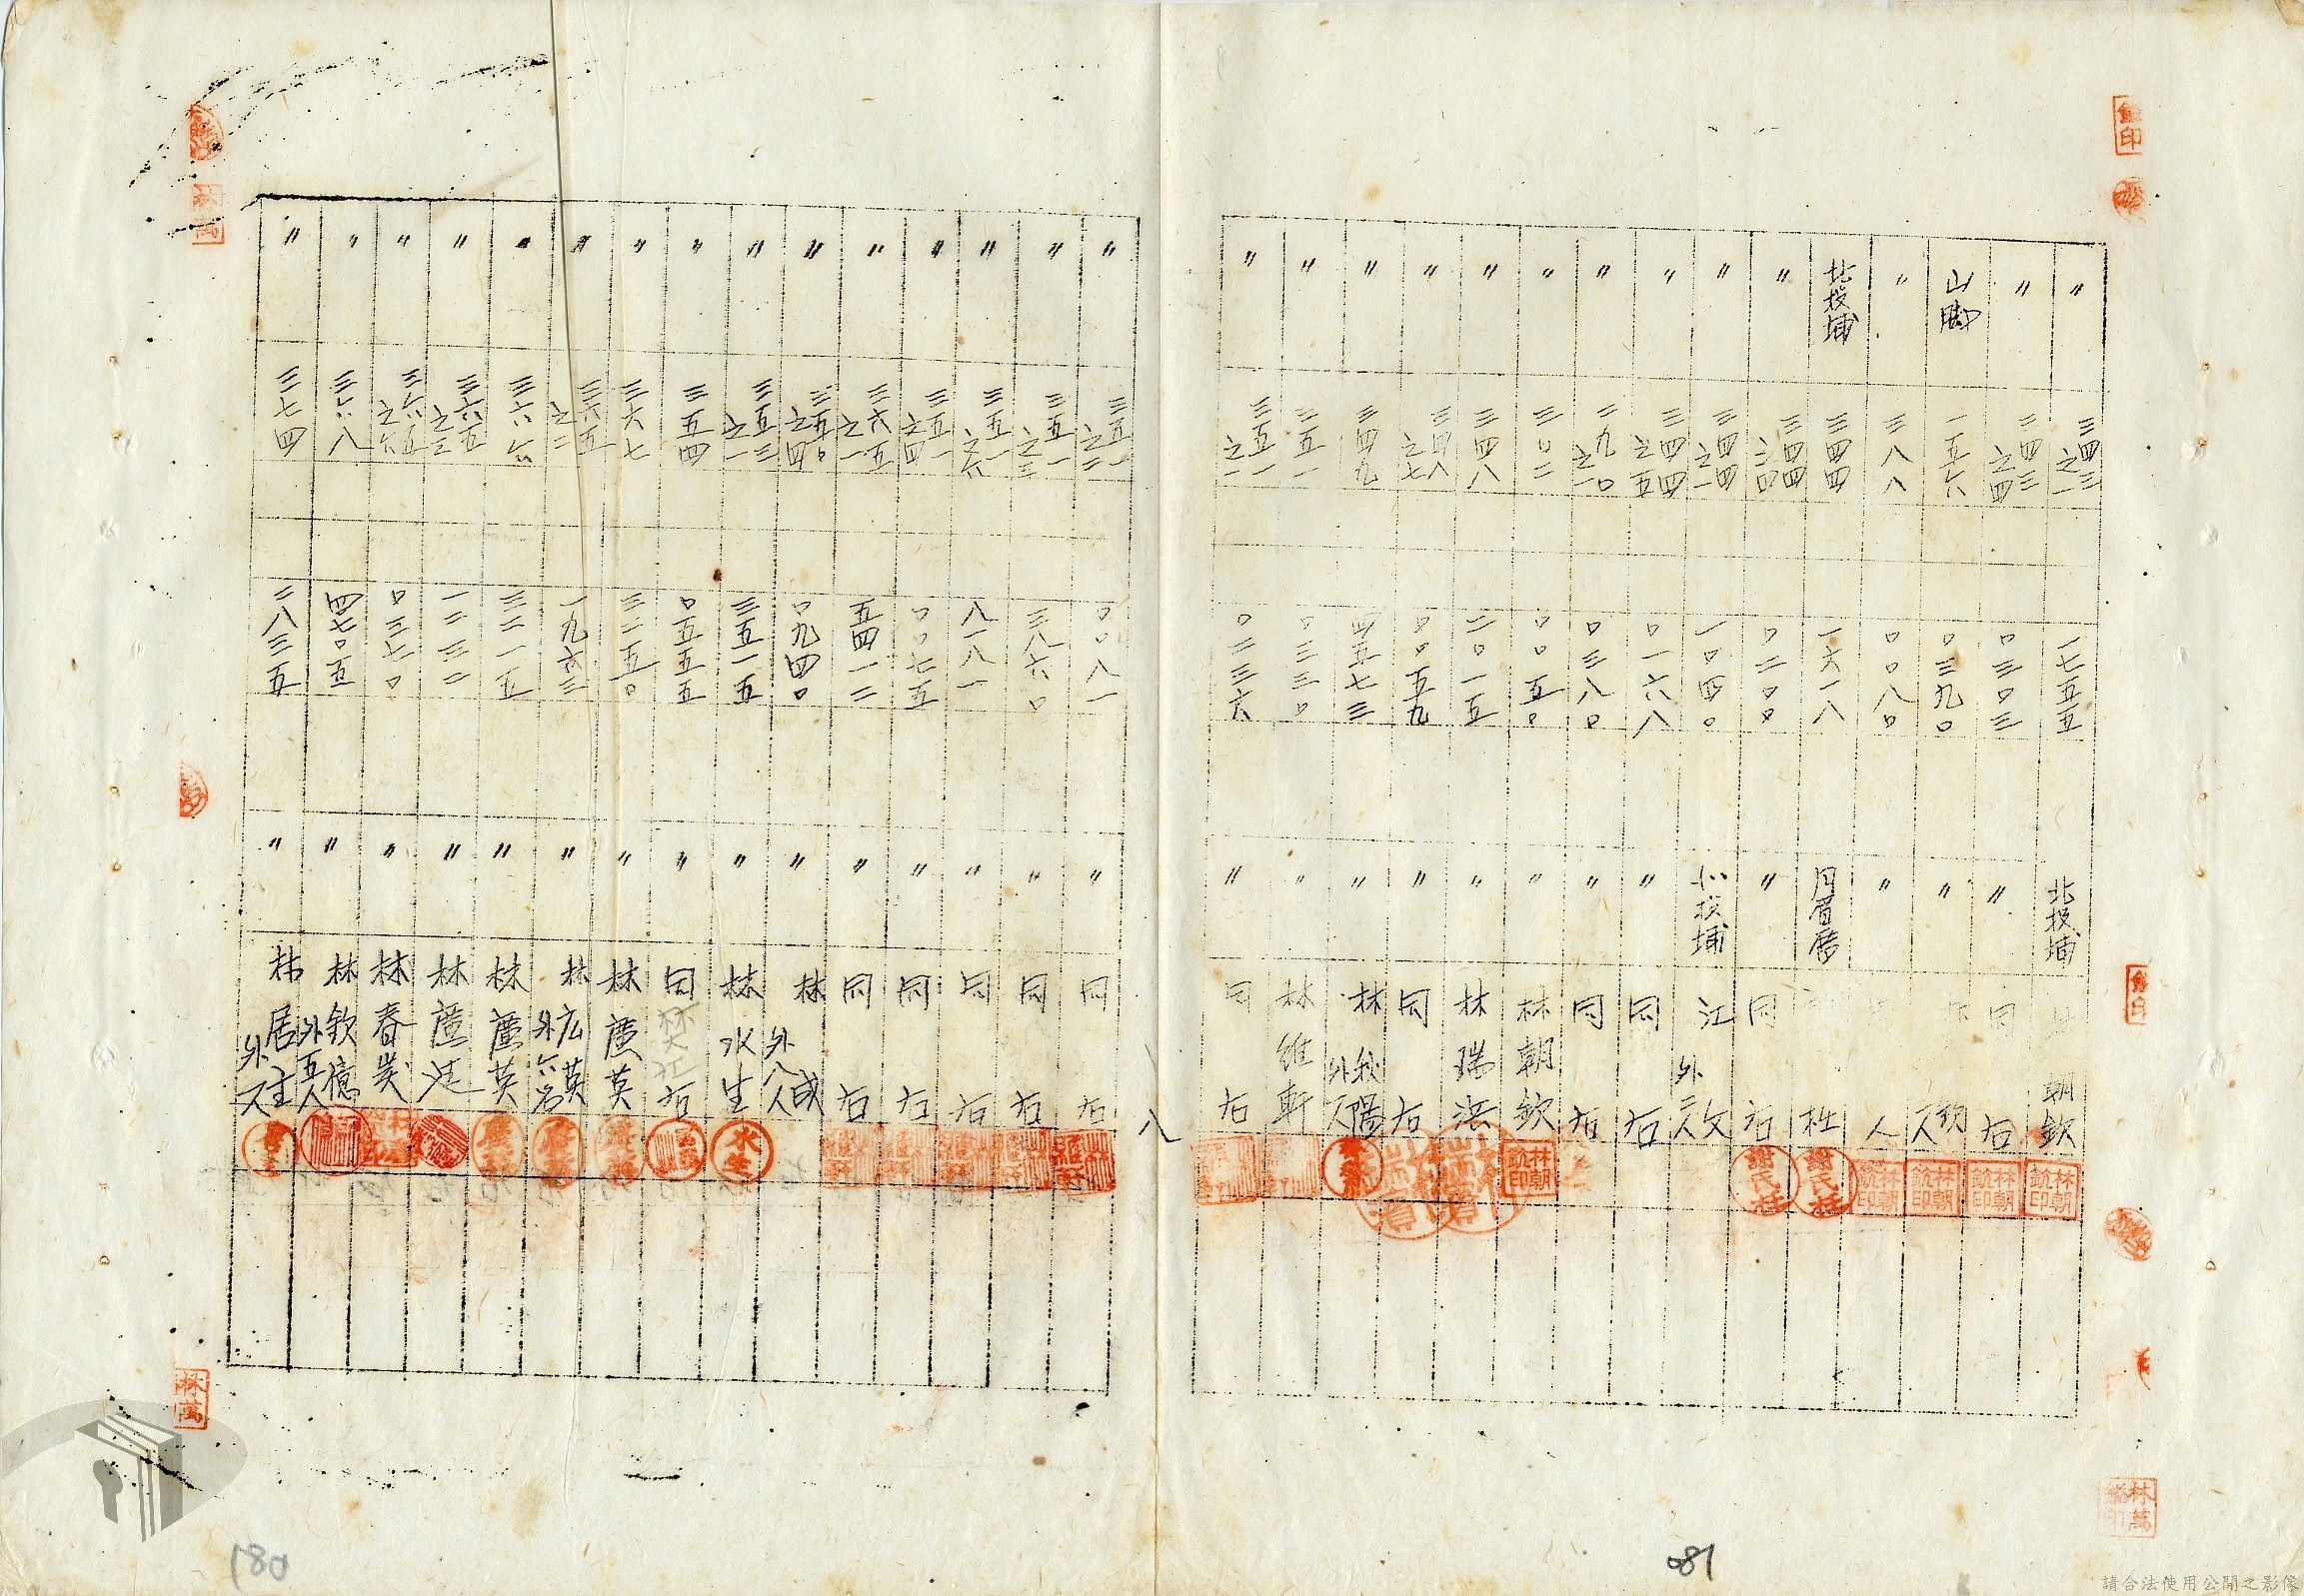 〃 三四三之一 一七五五 北投埔 朝欽
〃 三四三之四 〇三〇三 〃 同右
山脚 一五六 〇三九〇 〃
〃 三八八 〇〇八〇 〃 人
北投埔 三四四 一六一八 月眉厝 杜
〃 三四四之四 〇二〇〇 〃 同右
〃 三四四之一 一〇四〇 北投埔 江文外二人
〃 三四四之五 〇一六八 〃 同右
〃 二九〇之一 〇三八〇 〃 同右
〃 三〇二 〇〇五〇 〃 林朝欽
〃 三四八 二〇一五 〃 林瑞
〃 三四八之七 〇〇五九 〃 同右
〃 三四九 四五七三 〃 林秋陽外一人
〃 三五一 〇三三〇 〃 林維軒
〃 三五一之一 〇二三六 〃 同右
八
〃 三五一之二 〇〇八一 〃 同右
〃 三五一之三 三八六〇 〃 同右
〃 三五一之六 八一八一 〃 同右
〃 三五一之四 〇〇七五 〃 同右
〃 三六五之一 五四一二 〃 同右
〃 三五〇之四 〇九四〇 〃 林成外八人
〃 三五三之一 三五一五 〃 林水生
〃 三五四 〇五五五 〃 同右
〃 三六七 三二五〇 〃 林廣英
〃 三六五之二 一九六三 〃 林広英外六名
〃 三六六 三二一五 〃 林廣英
〃 三六五之三 一二三二 〃 林
〃 三六五之六 〇三七〇 〃 林春炭
〃 三六八 四七〇五 〃 林欽億外五人
〃 三七四 二八三五 〃 林居主外一人
林朝欽印
謝氏桂
水生
林萬
180
081
請合法使用公開之影像